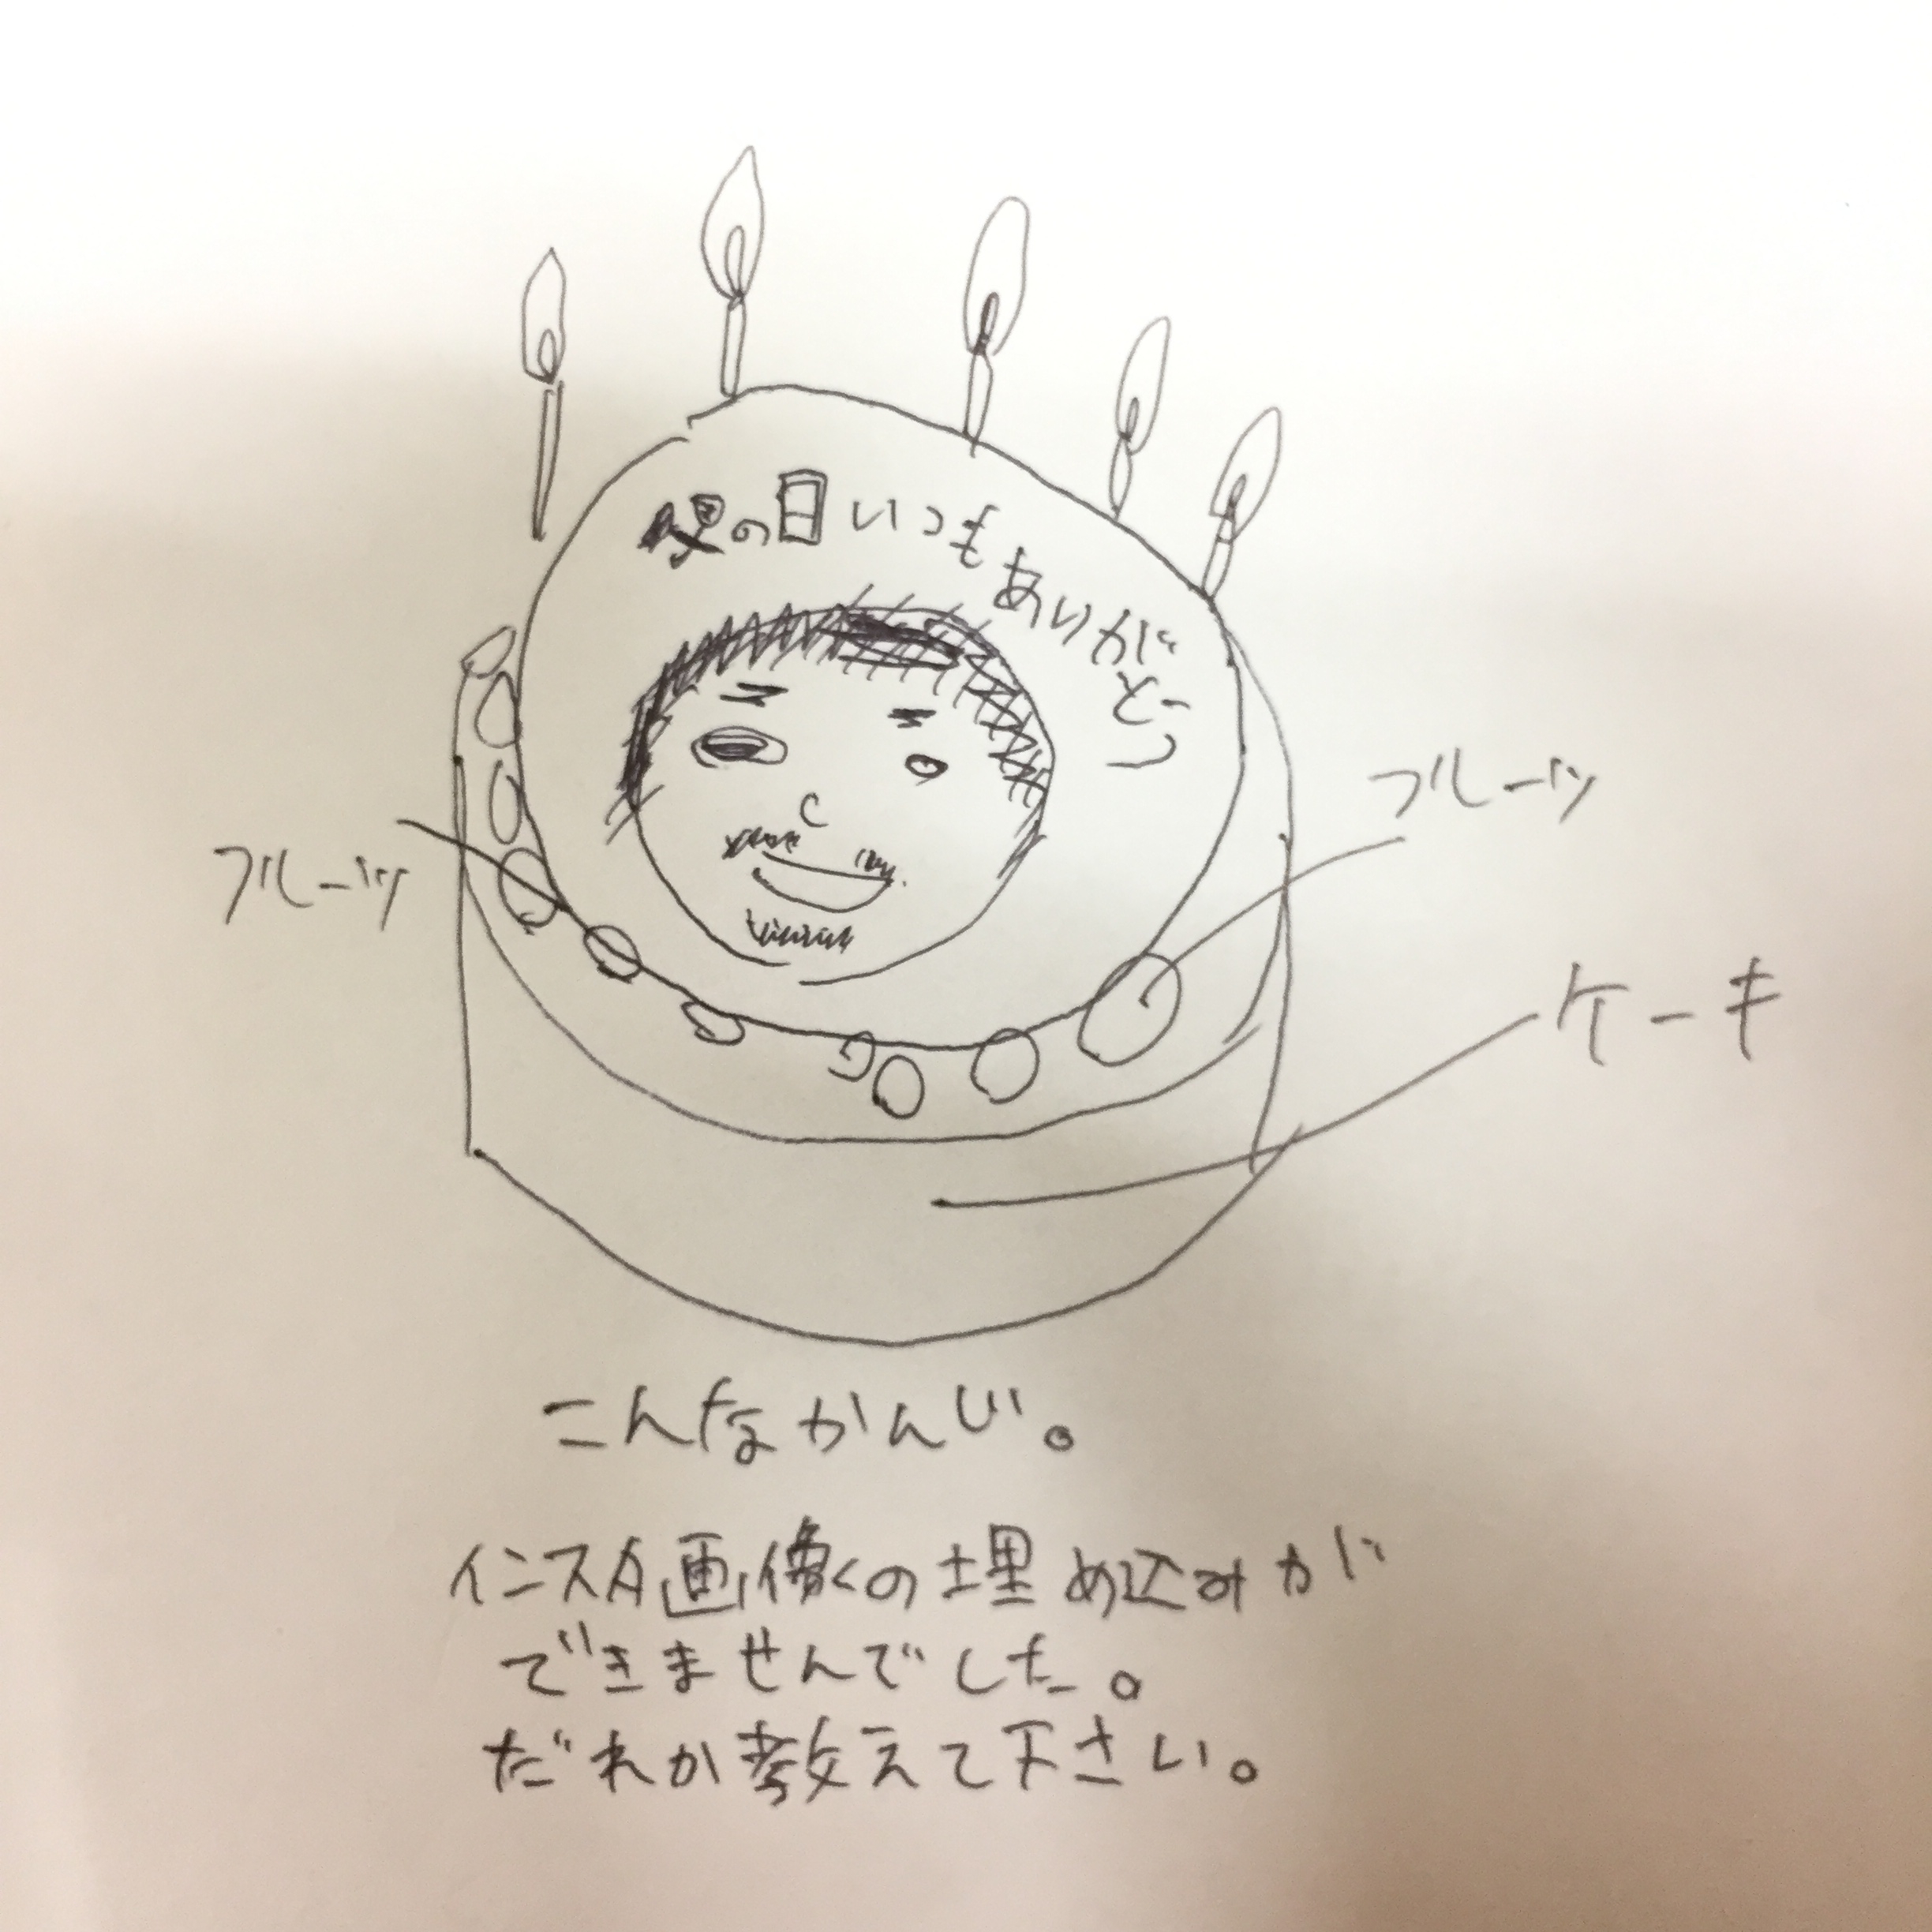 父の日いつもありがとう
フルーツ
フルーツ
ケーキ
こんなかんじ。
インスタ画像の埋め込みが
できませんでした。
だれか教えて下さい。